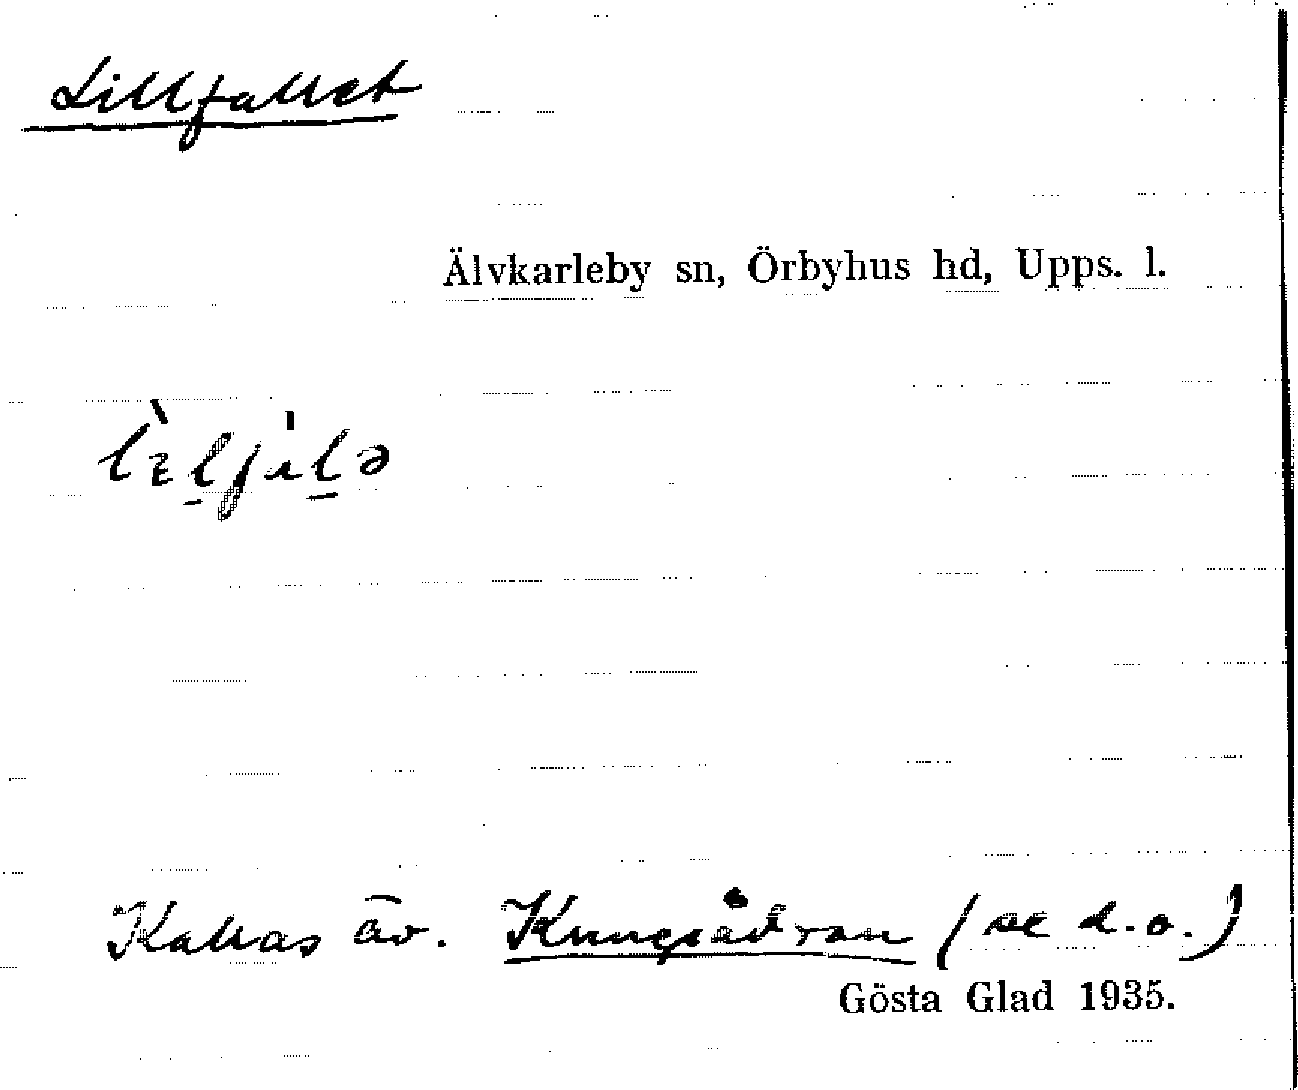 Lillfallet
Älvkarleby sn, Örbyhus hd, Upps. l.
Kallas äv. Kungsådran (se d.o.)
Gösta Glad 1935.